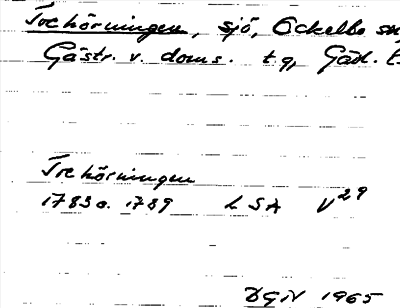 Trehörningen, sjö, Ockelbo sn
Gästr. v. doms. t q, Gävl.
Trehörningen
1783 o. 1789 LSA V29
1965